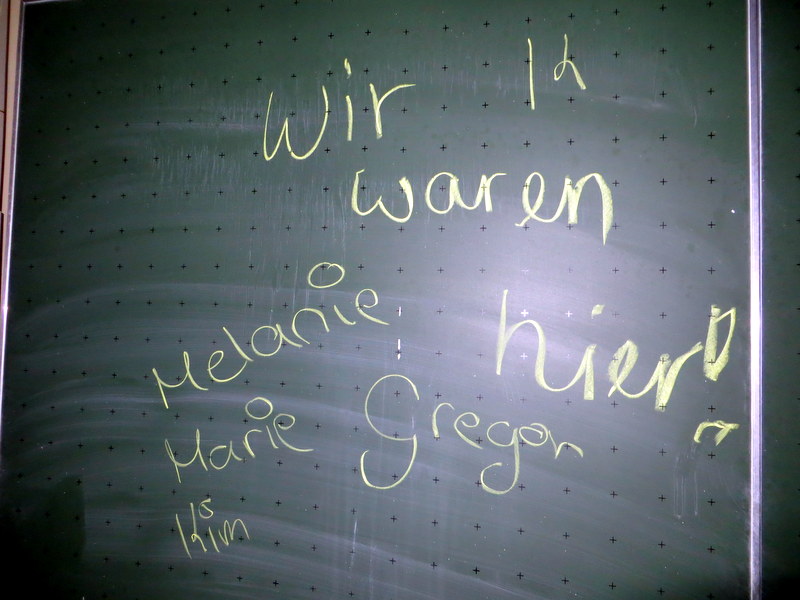 Wir
waren
hier!
Melanie
Marie Gregor
Kim